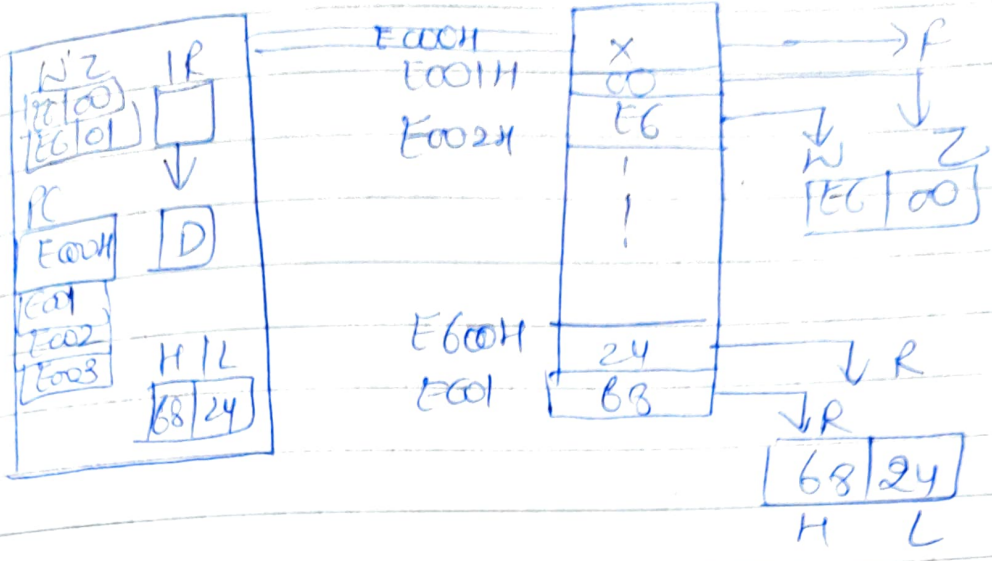 W Z IR
EE 00
E6 01
PC
E000H
D
E001
E002
E003
H L
68 24
E000H
E001H
E002H
X
00
E6
E600H
E601
24
68
F
W Z
E6 00
R
R
68 24
H L